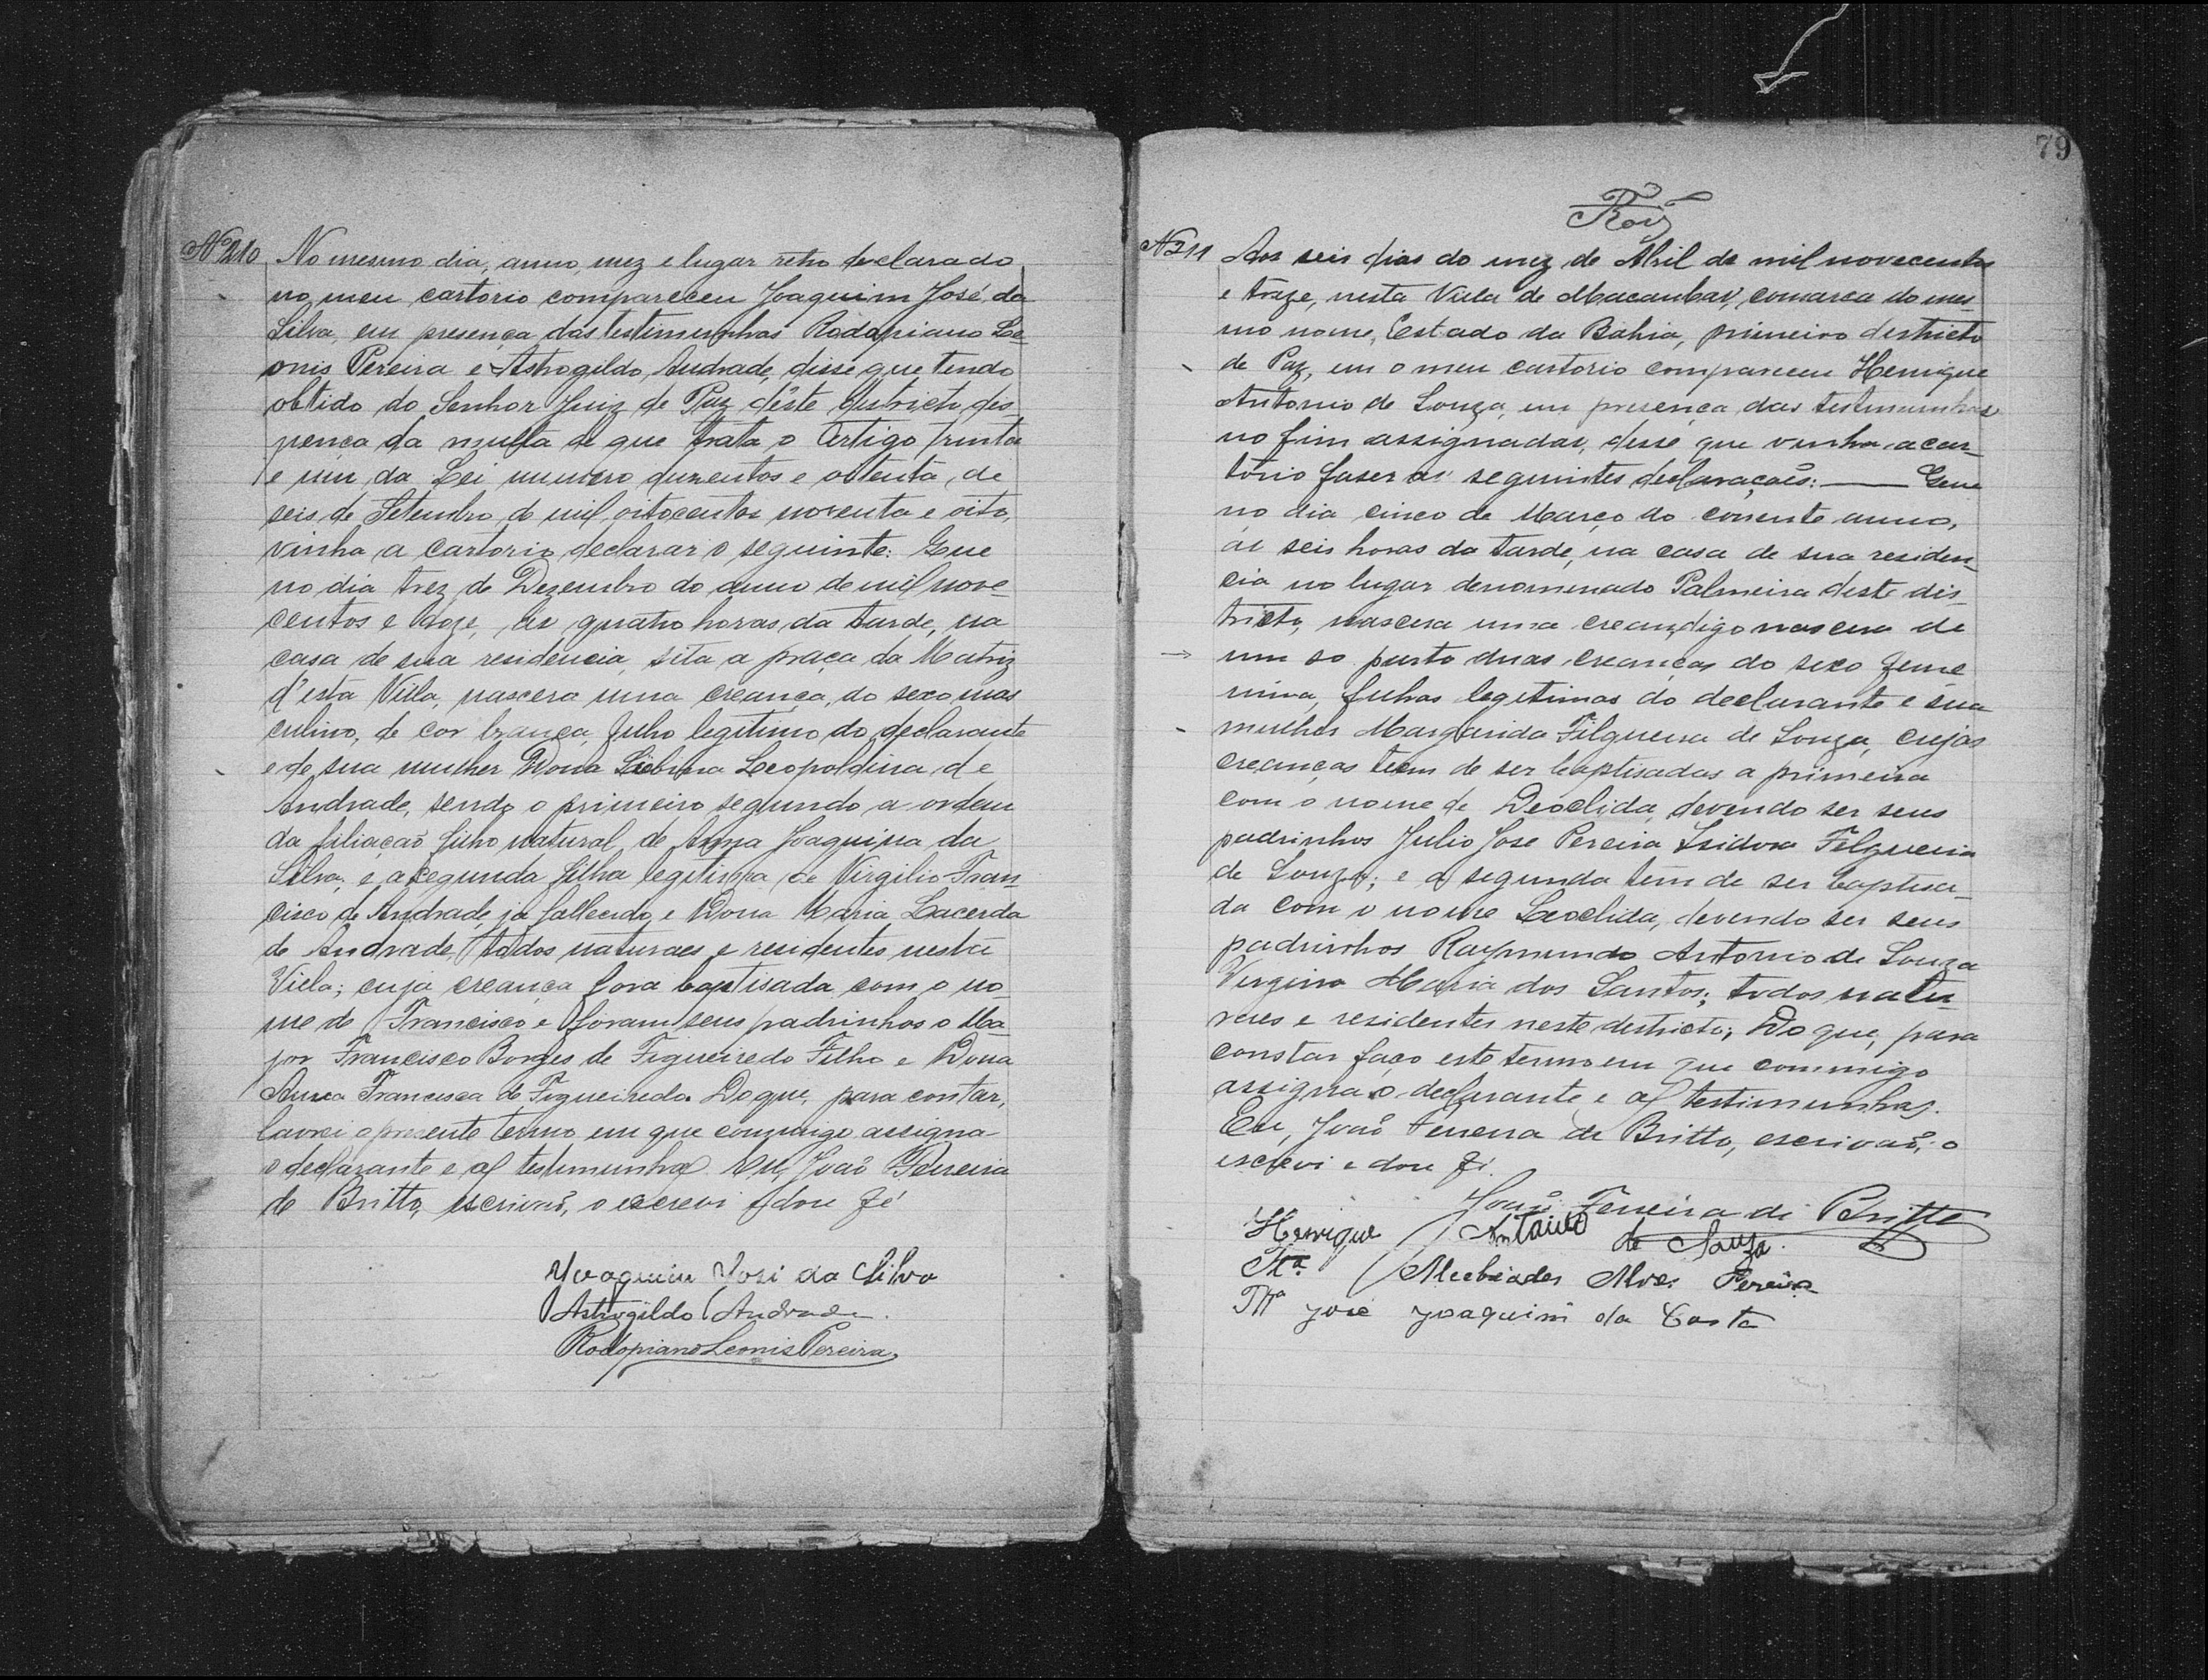 Nº 210 No mesmo dia, anno, mez e lugar retro declarado
no meu cartorio compareceu Joaquim José da
Silva, em presença das testimunhas Rodopiano Le-
onis Pereira e Astrogildo Andrade, disse que tendo
obtido do Senhor Juiz de Paz d'este districto, dis-
pença da multa de que trata o Artigo trinta
e um da Lei numero duzentos e oitenta, de
seis de Setembro de mil oitocentos noventa e oito,
vinha a cartorio declarar o seguinte: Que
no dia trez de Dezembro do anno de mil nove-
centos e doze, às quatro horas da tarde, na
casa de sua residencia, sita a praça da Matriz
d'esta Villa, nascera uma creança, do sexo mas
culino, de cor branca, filho legitimo do declarante
e de sua mulher Dona Leopoldina de
Andrade, sendo o primeiro segundo a ordem
da filiação filho natural de Anna Joaquina da
Silva, e a segunda filha legitima de Virgilio Fran-
cisco de Andrade, já fallecido, e Dona Maria Lacerda
de Andrade, todos naturaes e residentes nesta
Villa; cuja creança fora baptisada com o no-
me de Francisco e foram seus padrinhos o Ma-
jor Francisco Borges de Figueiredo Filho e Dona
Anna Francisca de Figueiredo. Do que, para contar,
lavrei o presente termo em que commigo assigna
o declarante e as testimunhas. Eu, João Ferreira
de Britto, escrivão, o escrevi e dou fé
Joaquim José da Silva
Astrogildo Andrade.
Rodopiano Leonis Pereira
79
Nº 211 Aos seis dias do mez de Abril de mil novecentos
e treze, nesta Villa de Macaubas, comarca do mes-
mo nome, Estado da Bahia, primeiro destricto
de Paz, em o meu cartorio compareceu Henrique
Antonio de Souza, em presença das testimunhas
no fim assignadas, disse que vinha a car-
torio faser as seguintes declarações: — Que
no dia cinco de Março do corrente anno,
as seis horas da tarde, na casa de sua residen-
cia no lugar denomenado Palmeira deste dis-
tricto, nascera uma crean, digo nascera de
um so parto duas creanças do sexo feme
nino, filhas legitimas do declarante e sua
mulher Margarida Filgueira de Souza, cujas
creanças tem de ser baptisadas a primeira
com o nome de Deoclida, devendo ser seus
padrinhos Julio Jose Pereira Isidora Filgueira
de Souza; e a segunda tem de ser baptisa-
da com o nome Leoclida, devendo ser seus
padrinhos Raymundo Antonio de Souza
Virginia Maria dos Santos; todos natu-
raes e residentes neste destricto; Do que, para
constar faço este termo em que commigo
assigna o declarante e as testimunhas.
Eu, João Ferreira de Britto, escrivão, o
escrevi e dou fé.
João Ferreira de Britto
Henrique Antonio de Souza.
Tª Alcebiades Alves Pereira
Tª José Joaquim da Costa